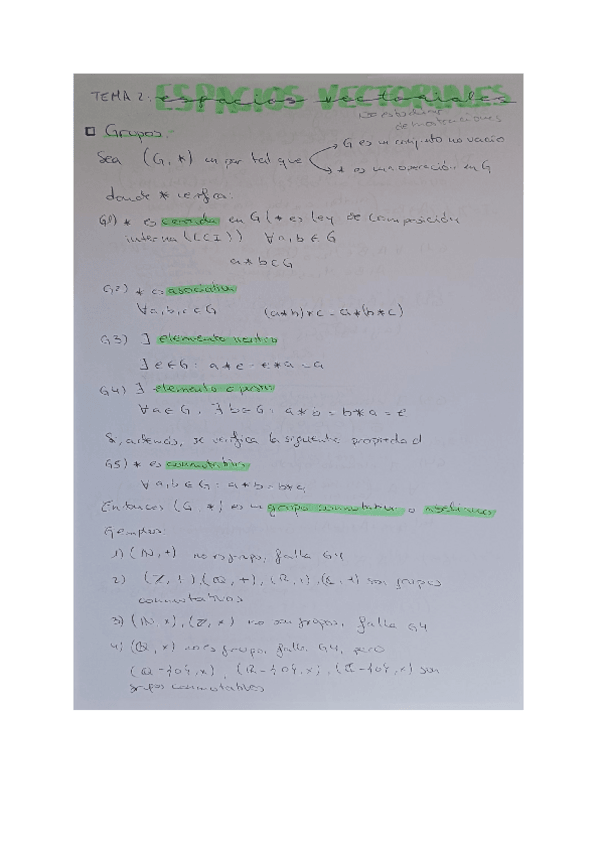 TEMA 2: ESPACIOS VECTORIALES
espacios vectoriales
demostraciones
Grupos:
Sea (G, *) un par tal que → G es un conjunto no vacío
→ * es una operación en G
donde * verifica:
G1) * es cerrada en G (* es ley de composición
interna (LCI)) ∀a,b ∈ G
a * b ∈ G
G2) * es asociativa
∀a,b,c ∈ G (a*b)*c = a*(b*c)
G3) ∃ elemento neutro
∃ e ∈ G: a * e = e * a = a
G4) ∃ elemento opuesto
∀a ∈ G, ∃ b ∈ G: a * b = b * a = e
Si, además, se verifica la siguiente propiedad
G5) * es conmutativa
∀a,b ∈ G: a * b = b * a
Entonces (G, *) es un grupo conmutativo o abeliano
Ejemplos:
1) (ℕ, +) no es grupo, falla G4
2) (ℤ, +), (ℚ, +), (ℝ, +), (ℂ, +) son grupos
conmutativos
3) (ℕ, x), (ℤ, x) no son grupos, falla G4
4) (ℚ, x) no es grupo, falla G4, pero
(ℚ-{0}, x), (ℝ-{0}, x), (ℂ-{0}, x) son
grupos conmutables